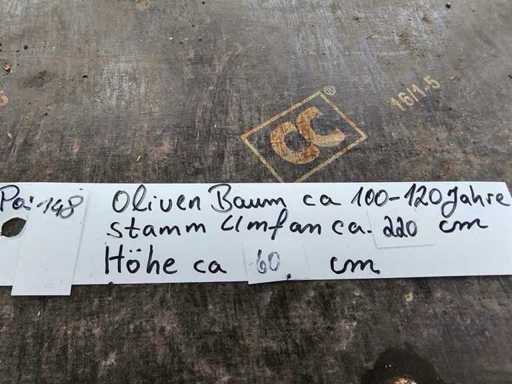 CC®
16/1-5
Pa: 148
Oliven Baum ca 100-120 Jahre
stamm Umfan ca. 220 cm
Höhe ca 60 cm